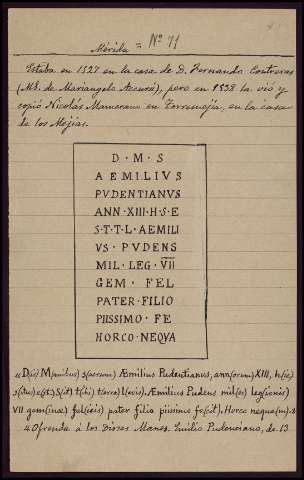 Mérida = Nº 71
Estaba en 1527 en la casa de D. Fernando Contreras
(MS. de Mariangelo Accursi), pero en 1538 la vió y
copió Nicolás Mamerano en Torremejía, en la casa
de los Mejías.
D · M · S
AEMILIVS
PVDENTIANVS
ANN · XIII · H · S · E
S · T · T · L · AEMILI
VS · PVDENS
MIL · LEG · VII
GEM · FEL
PATER · FILIO
PIISSIMO · FE
HORCO · NEQVA
«D(is) M(anibus) s(acrum) Æmilius Pudentianus, ann(orum) XIII, h(ic)
s(itus) e(st) S(it) t(ibi) t(erra) l(evis). Æmilius Pudens mil(es) leg(ionis)
VII gem(inae) fel(icis) pater filio piissimo fe(cit). Horco nequa(m).»
«Ofrenda á los Dioses Manes. Emilio Pudenciano, de 13